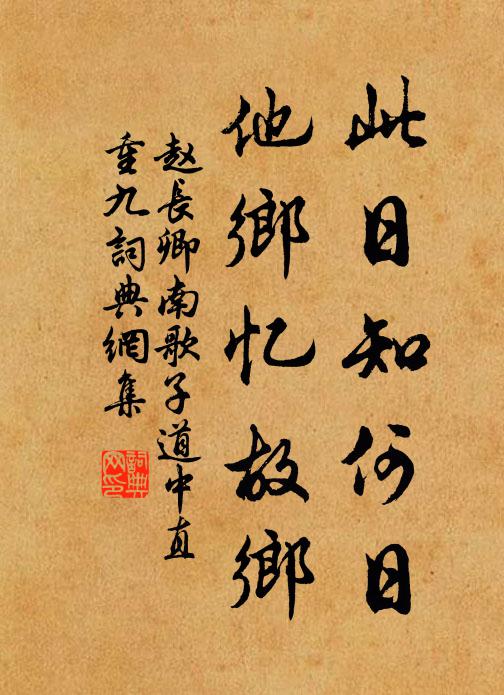 此日知何日
他鄉忆故鄉
赵長卿南歌子道中直
重九詞典網集
詞典网印